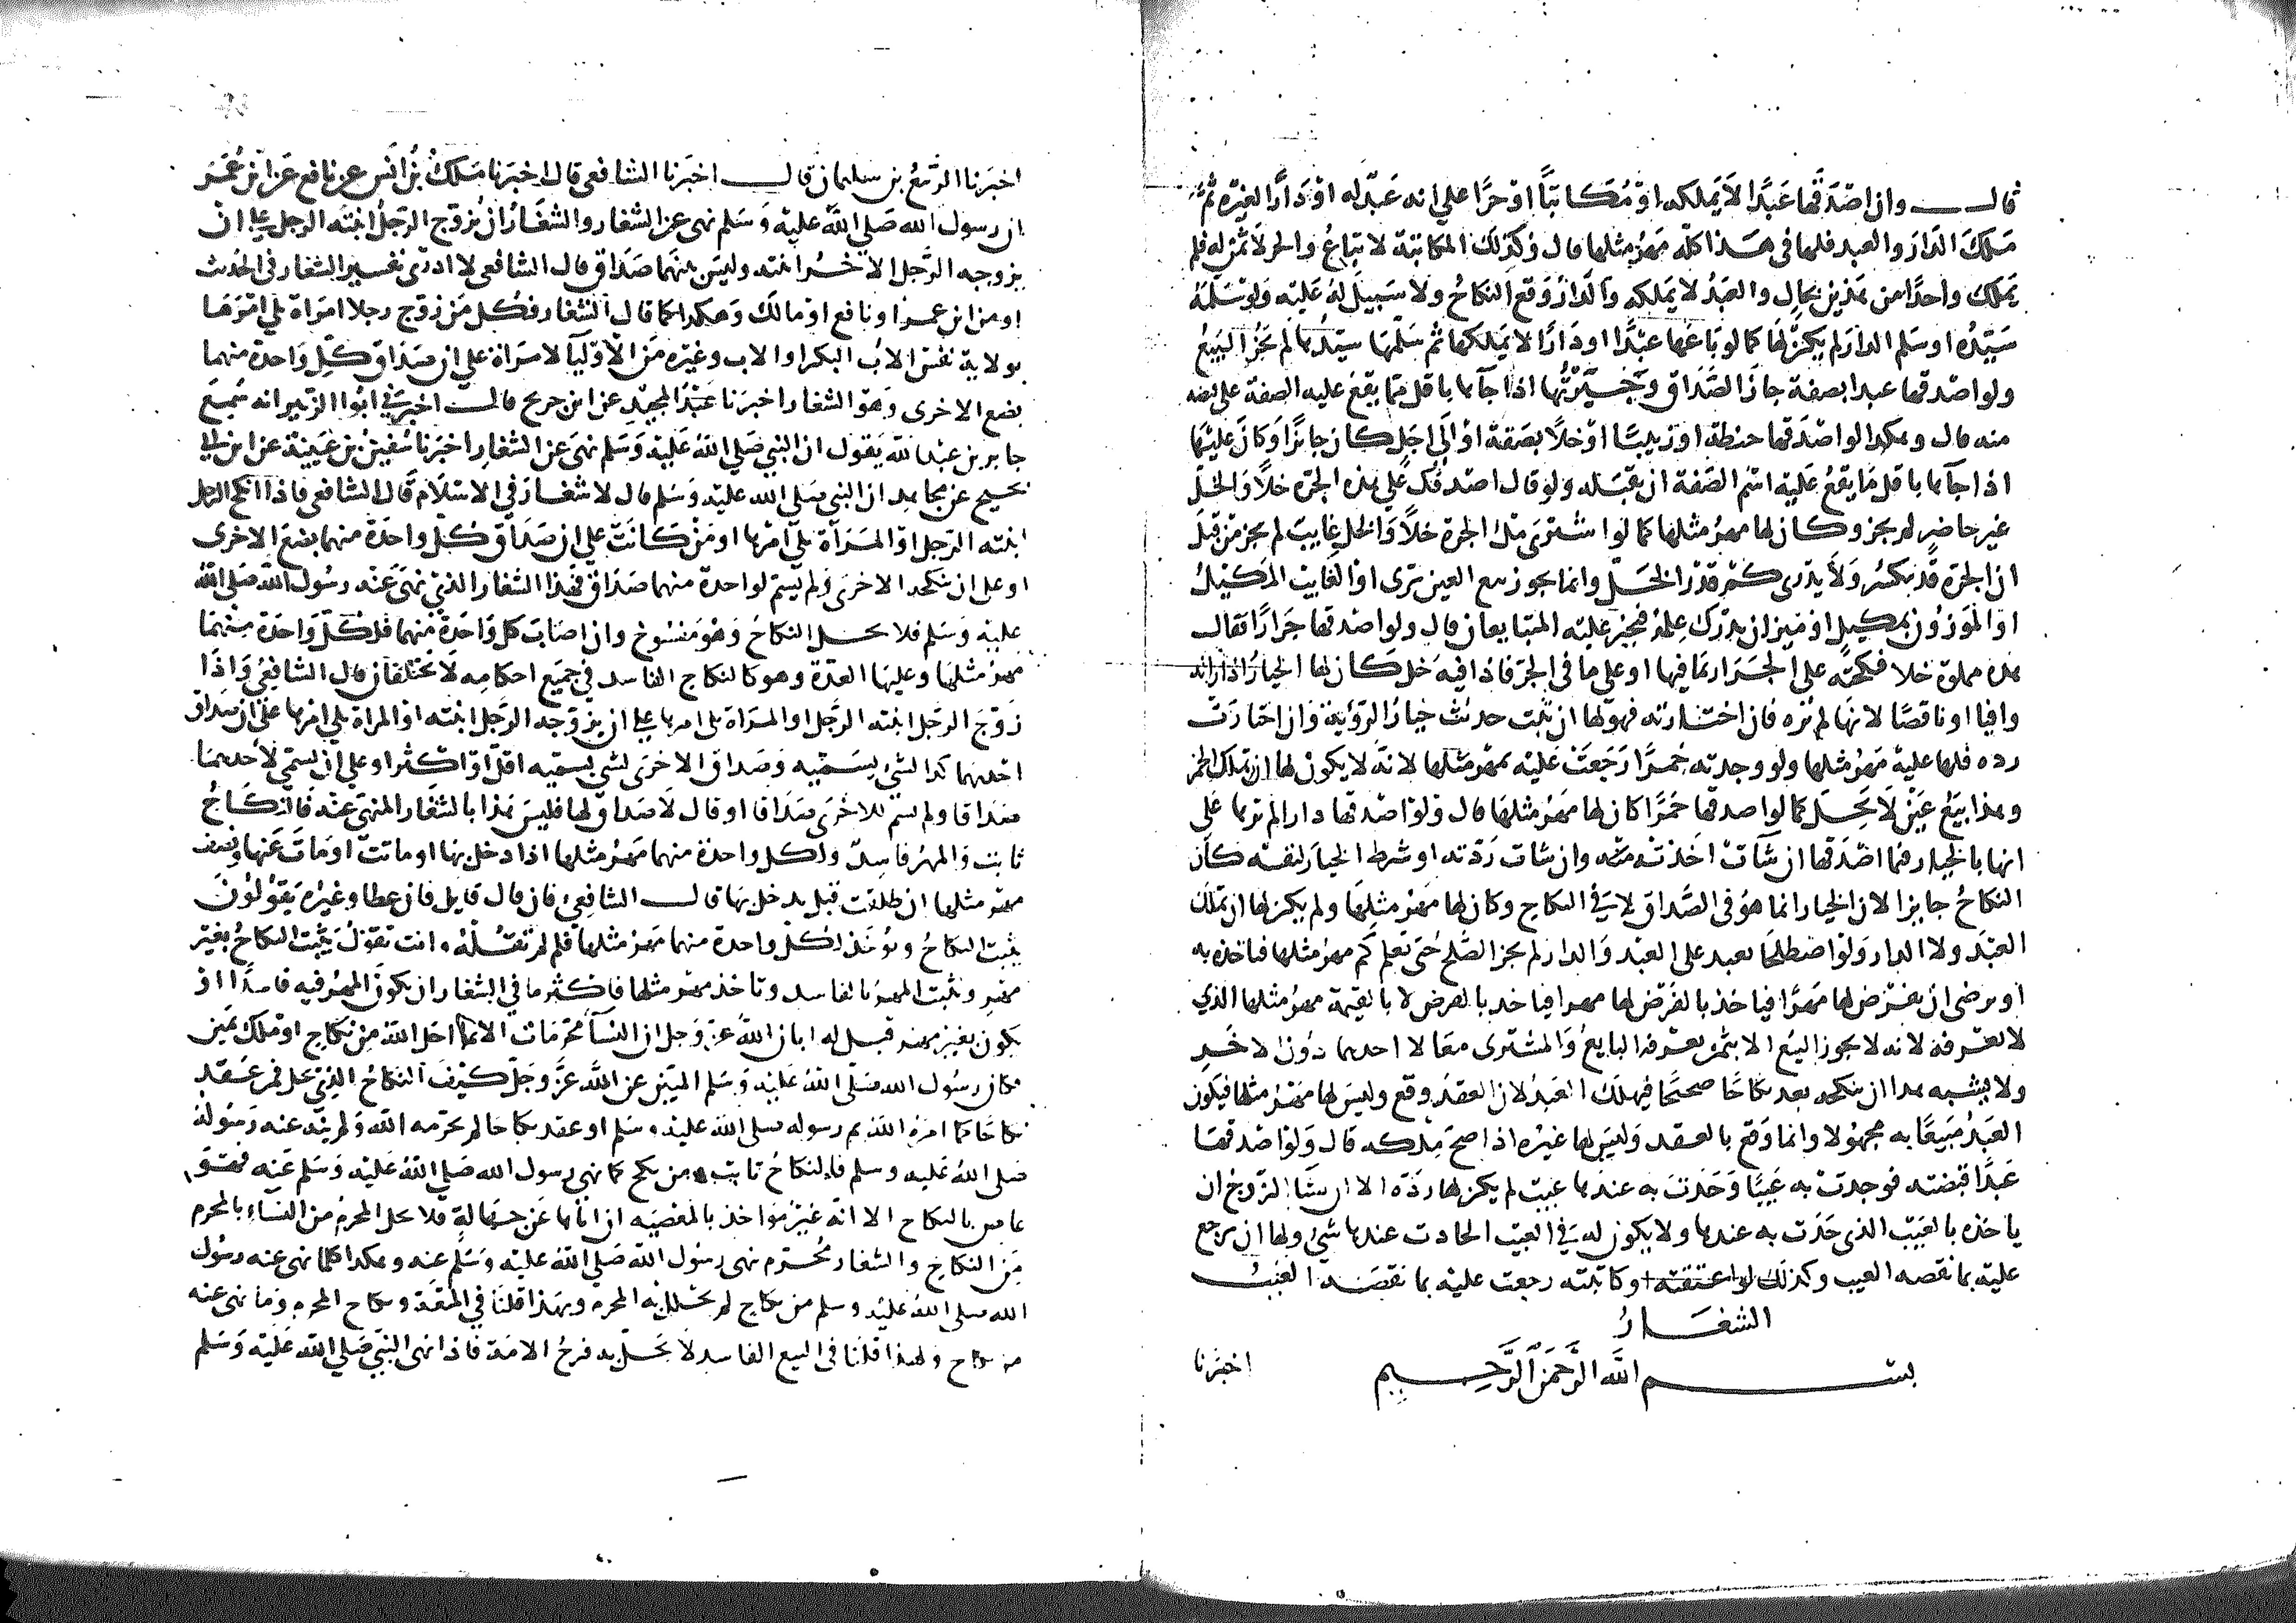 قال وان اصدقها عبدا لا يملكه او مكاتبا او حرا على انه عبد له او دارا لغيره ثم
ملك الدار والعبد فلها في هذا كله مهر مثلها قال وكذلك المكاتبة لا تباع والحر لا ثمن له فلم
يملك واحدا من هذين بحال والعبد لا يملكه والدار وقع النكاح ولا سبيل له عليه ولو سلمه
سيده او سلم الدار لم يكن لها كما لو باعها عبدا او دارا لا يملكها ثم سلمها سيدها لم يجز البيع
ولو اصدقها عبدا بصفة جاز الصداق وجبرتها اذا جاها باقل مما يقع عليه الصفة على قبضه
منه قال وهكذا لو اصدقها حنطة او زبيبا او خلا بصفة او الى اجل كان جايزا وكان عليها
اذا جاها باقل ما يقع عليه اسم الصفة ان تقبله ولو قال اصدقتك على هذه الجرة خلا والخل
غير حاضر لم يجز وكان لها مهر مثلها كما لو اشترى ملء الجرة خلا والخل غايب لم يجز من قبل
ان الجرة قد تكسر ولا يدرى كم قدر الخل وانما يجوز بيع العين ترى او الغايب المكيل
او الموزون بمكيل او ميزان يدرك علمه فيجبر عليه المتبايعان قال ولو اصدقها جرارا فقال
هذه مملوة خلا فنكحته على الجرار بما فيها او على ما في الجر فاذا فيه خل كان لها الخيار اذا راته
وافيا او ناقصا لانها لم تره فان اختارته فهو لها ان ثبت حديث خيار الروية وان اختارت
رده فلها عليه مهر مثلها ولو وجدته خمرا رجعت عليه بمهر مثلها لانه لا يكون لها ان تملك الخمر
وهذا بيع عين لا تحل كما لو اصدقها خمرا كان لها مهر مثلها قال ولو اصدقها دارا لم ترها على
انها بالخيار فيما اصدقها ان شات اخذته وان شات ردته او شرط الخيار لنفسه كان
النكاح جايزا لان الخيار انما هو في الصداق لا في النكاح وكان لها مهر مثلها ولم يكن لها ان تملك
العبد ولا الدار ولو اصطلحا بعبد على العبد والدار لم يجز الصلح حتى تعلم كم مهر مثلها فتاخذه به
او يرضى ان يفرض لها مهرا فياخذ بالفرض لها مهرا فياخذ بالعرض لا بالقيمة مهر مثلها الذي
لا تعرفه لانه لا يجوز البيع الا بثمن يعرفه البايع والمشترى معا لا احدهما دون الاخر
ولا يشبه هذا ان ينكحه بعبد نكاحا صحيحا فيهلك العبد لان العقد وقع وليس لها مهر مثلها فيكون
العبد مبيعا به مجهولا وانما وقع بالعقد وليس لها غيره اذا صح ملكه قال ولو اصدقها
عبدا قبضته فوجدت به عيبا وحدث به عندها عيب لم يكن لها رده الا ان يشا الزوج ان
ياخذه بالعيب الذي حدث به عندها ولا يكون له في العيب الحادث عندها شي ولها ان ترجع
عليه بما نقصه العيب وكذلك لو اعتقته او كاتبته رجعت عليه بما نقصه العيب
الشغار
بسم الله الرحمن الرحيم
اخبرنا
اخبرنا الربيع بن سليمان قال اخبرنا الشافعي قال اخبرنا ملك بن انس عن نافع عن ابن عمر
ان رسول الله صلى الله عليه وسلم نهى عن الشغار والشغار ان يزوج الرجل ابنته الرجل على ان
يزوجه الرجل الاخر ابنته وليس بينهما صداق قال الشافعي لا ادري تفسير الشغار في الحديث
او من ابن عمر او نافع او مالك وهكذا كما قال الشغار فكل من زوج رجلا امراة يلي امرها
بولاية نفس الاب البكر او الاب وغيره من الاوليا لامراة على ان صداق كل واحدة منهما
بضع الاخرى وهو الشغار اخبرنا عبد المجيد عن ابن جريج قال اخبرني ابو الزبير انه سمع
جابر بن عبد الله يقول ان النبي صلى الله عليه وسلم نهى عن الشغار اخبرنا سفين بن عيينة عن ابن ابي
نجيح عن مجاهد ان النبي صلى الله عليه وسلم قال لا شغار في الاسلام قال الشافعي فاذا انكح الرجل
ابنته الرجل او المراة يلي امرها او من كانت على ان صداق كل واحدة منهما بضع الاخرى
او على ان ينكحه الاخرى ولم يسم لواحدة منهما صداق فهذا الشغار الذي نهى عنه رسول الله صلى الله
عليه وسلم فلا يحل النكاح وهو مفسوخ وان اصاب كل واحدة منهما فلكل واحدة منهما
مهر مثلها وعليها العدة وهو كالنكاح الفاسد في جميع احكامه لا يختلفان قال الشافعي واذا
زوج الرجل ابنته الرجل او المراة يلي امرها على ان يزوجه الرجل ابنته او المراة يلي امرها على ان صداق
احديهما كذا لشي يسميه وصداق الاخرى لشي يسميه اقل او اكثر او على ان يسمي لاحديهما
صداقا ولم يسم للاخرى صداقا او قال لا صداق لها فليس هذا بالشغار المنهي عنه فالنكاح
ثابت والمهر فاسد ولكل واحدة منهما مهر مثلها اذا دخل بها او ماتت او مات عنها ونصف
مهر مثلها ان طلقت قبل يدخل بها قال الشافعي فان قال قايل فان عطا وغيره يقولون
يثبت النكاح ويوخذ لكل واحدة منهما مهر مثلها فلم لم تقله وانت تقول يثبت النكاح بغير
مهر ويثبت المهر الفاسد وتاخذ مهر مثلها فاكثر ما في الشغار ان يكون المهر فيه فاسدا او
يكون بغير مهر قيل له ابان الله عز وجل ان النسا محرمات الا بما احل الله من نكاح او ملك يمين
فكان رسول الله صلى الله عليه وسلم المبين عن الله عز وجل كيف النكاح الذي يحل فمن عقد
نكاحا كما امره الله ثم رسوله صلى الله عليه وسلم او عقد نكاحا لم يحرمه الله ولم ينه عنه رسوله
صلى الله عليه وسلم فالنكاح ثابت ومن نكح كما نهى رسول الله صلى الله عليه وسلم عنه فهو
عاص بالنكاح الا انه غير مواخذ بالمعصية ان اتاها عن جهالة فلا يحل المحرم من النساء بالمحرم
من النكاح والشغار محرم نهى رسول الله صلى الله عليه وسلم عنه وهكذا كلما نهى عنه رسول
الله صلى الله عليه وسلم من نكاح لم يحلل به المحرم وبهذا قلنا في المتعة ونكاح المحرم وما نهى عنه
من نكاح ولهذا قلنا في البيع الفاسد لا يحل به فرج الامة فاذا نهى النبي صلى الله عليه وسلم